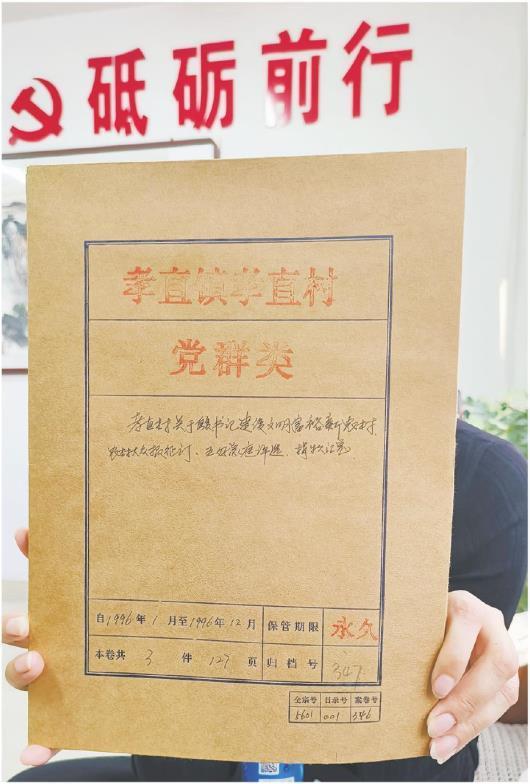 砥砺前行
孝直镇孝直村
党群类
孝直村关于 书记建设文明富裕新农村
农村大众报征订、五好家庭评选、捐款
自1996年1月至1996年12月 保管期限 永久
本卷共 3 件 127 页 归档号 347
全宗号 目录号 案卷号
5601 001 346